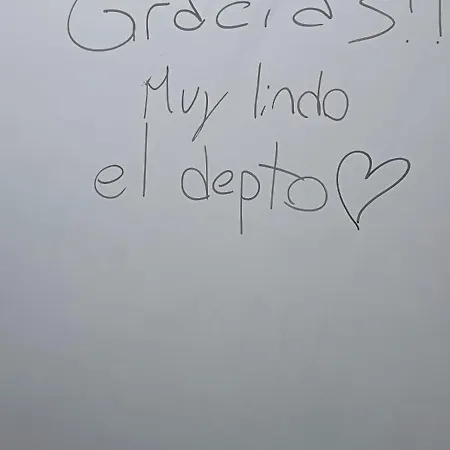 Gracias!!
Muy lindo
el depto♡